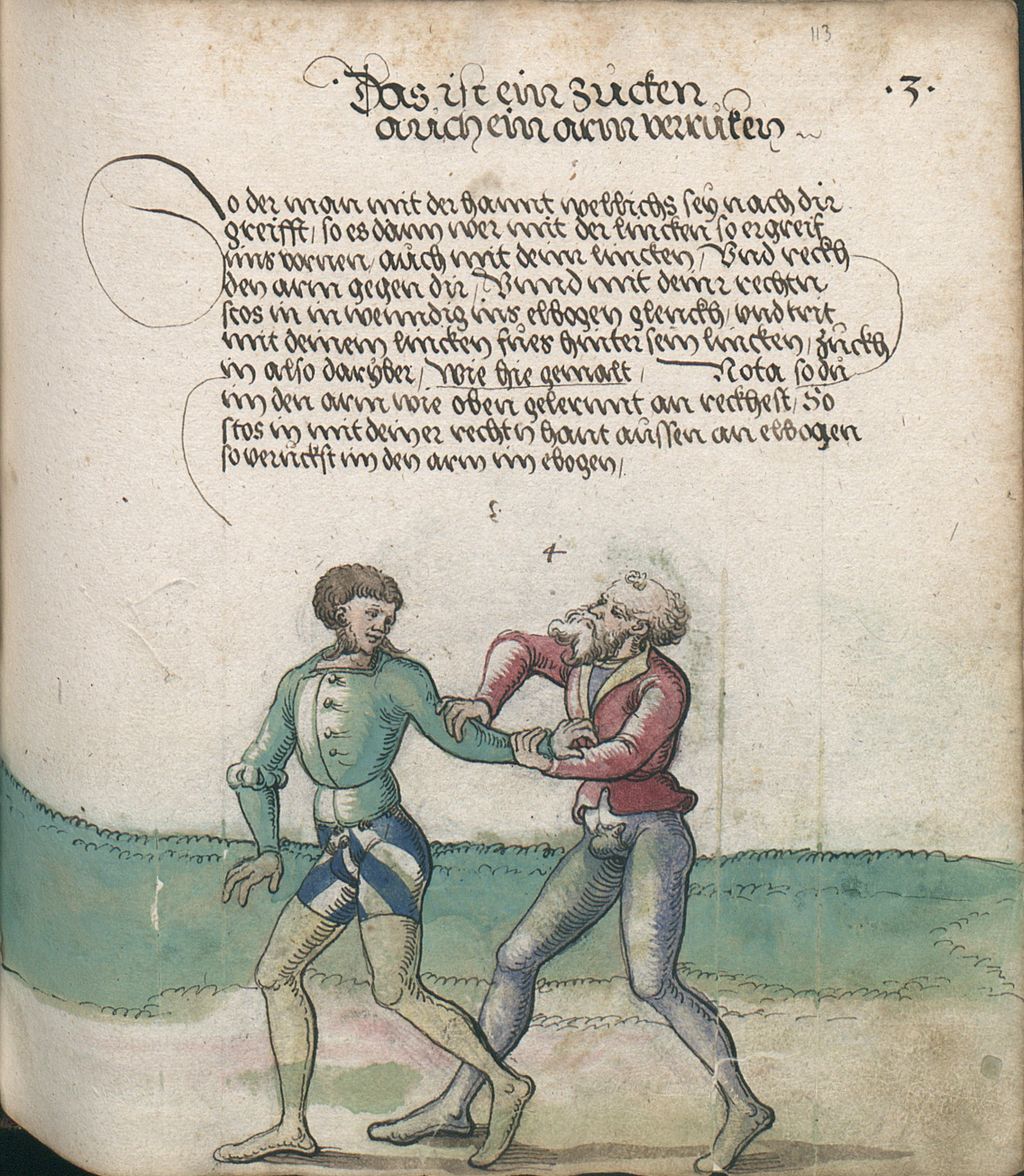 113
Das ist ein zucken
auch ein arm verrucken
.3.
So der man mit der hannt wellichs sey nach dir
greifft / so es dann wer mit der lincken so ergreif
ims vornen / auch mit deinr lincken / Vnd reckh
den arm gegen dir / Vnnd mit deinr rechtn
stos in inwenndig ins elbogen glenckh / vnd trit
mit deinem lincken fues hinter sein lincken / zuckh
in also daryber / wie hie gemalt / Nota so du
im den arm wie oben gelernnt an reckhest / So
stos in mit deiner rechtn hant aussen an elbogen
so veruckst im den arm im ebogen /
4